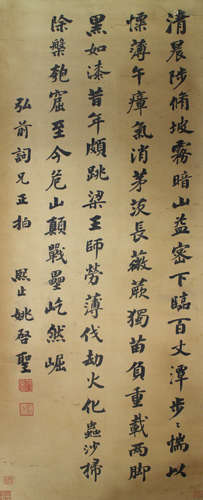 清晨陟脩坡霧暗山益密下臨百丈潭步〻惴以
慄薄午瘴氣消茅茨長薇蕨獨苗負重載兩脚
黑如漆昔年頗跳梁王師勞薄伐劫火化蟲沙掃
除槃匏窟至今危山顛戰壘屹然崛
弘前詞兄正拍 熙止姚啓聖